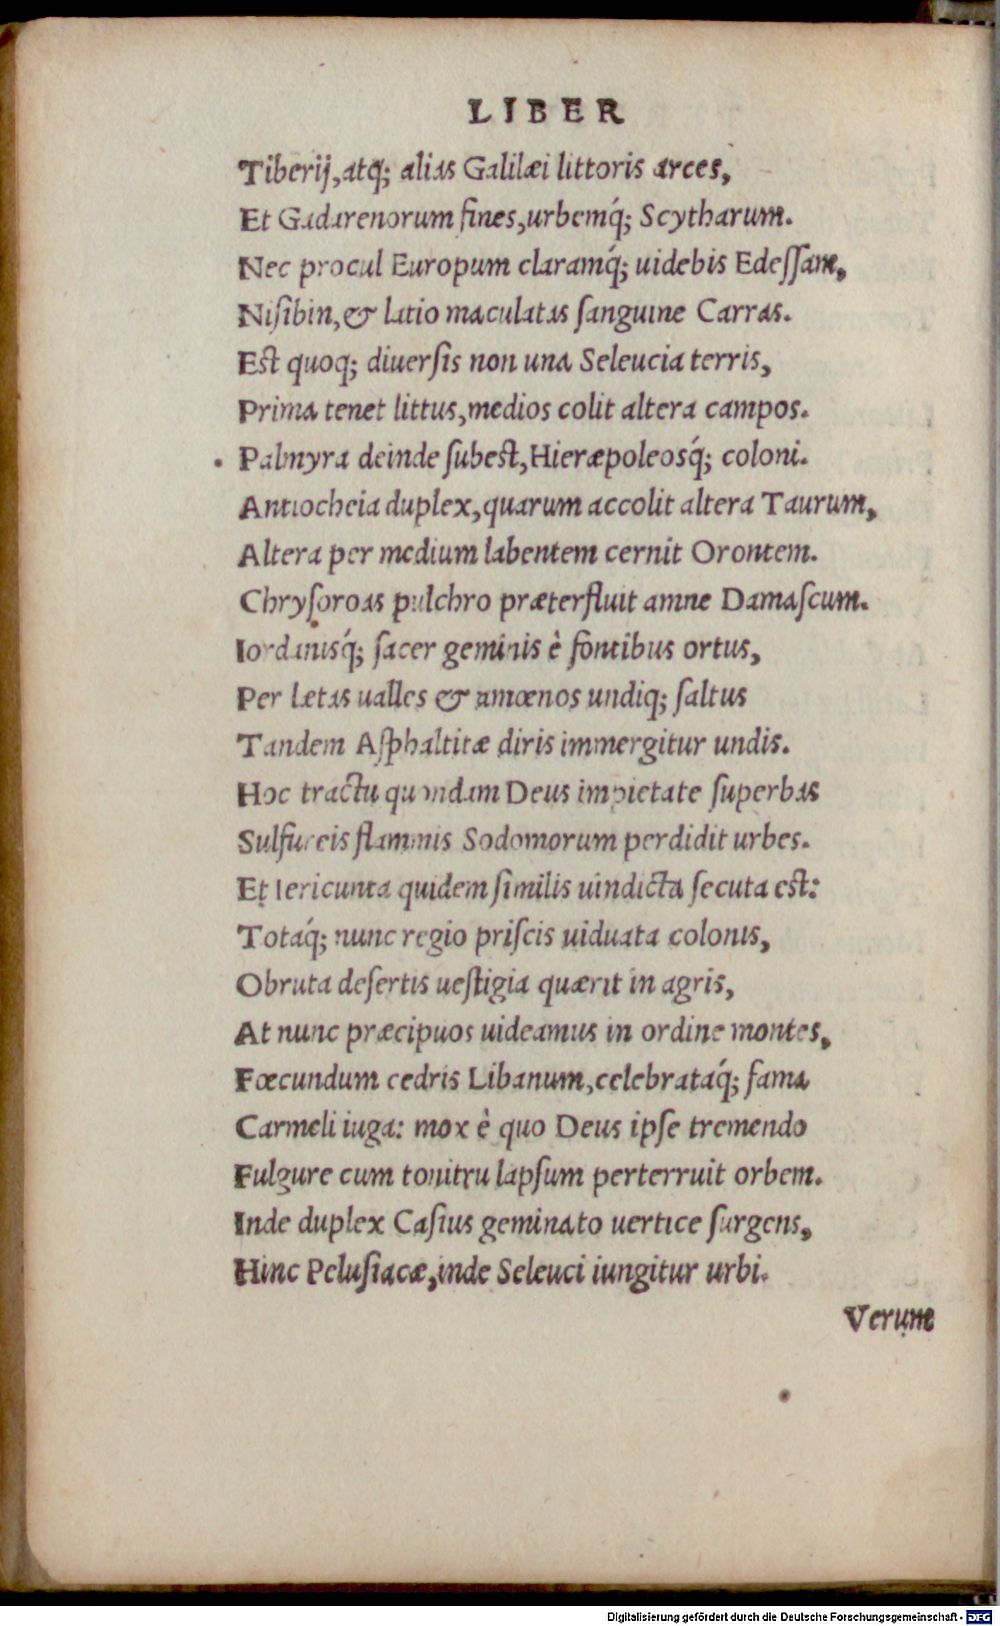 LIBER
Tiberij, atq; alias Galilæi littoris arces,
Et Gadarenorum fines, urbemq́; Scytharum.
Nec procul Europum claramq́; uidebis Edeſſam,
Niſibin, & latio maculatas ſanguine Carras.
Est quoq; diuerſis non una Seleucia terris,
Prima tenet littus, medios colit altera campos.
Palmyra deinde ſubest, Hieræpoleosq́; coloni.
Antiocheia duplex, quarum accolit altera Taurum,
Altera per medium labentem cernit Orontem.
Chryſoroas pulchro præterfluit amne Damaſcum.
Iordanisq́; ſacer geminis è fontibus ortus,
Per letas ualles & amœnos undiq; ſaltus
Tandem Aſphaltitæ diris immergitur undis.
Hoc tractu quondam Deus impietate ſuperbas
Sulfureis flammis Sodomorum perdidit urbes.
Et Iericunta quidem ſimilis uindicta ſecuta est:
Totaq́; nunc regio priſcis uiduata colonis,
Obruta deſertis ueſtigia quærit in agris,
At nunc præcipuos uideamus in ordine montes,
Fœcundum cedris Libanum, celebrataq́; fama
Carmeli iuga: mox è quo Deus ipſe tremendo
Fulgure cum tonitru lapſum perterruit orbem.
Inde duplex Caſius geminato uertice ſurgens,
Hinc Peluſiacæ, inde Seleuci iungitur urbi.
Verum
Digitalisierung gefördert durch die Deutsche Forschungsgemeinschaft - DFG